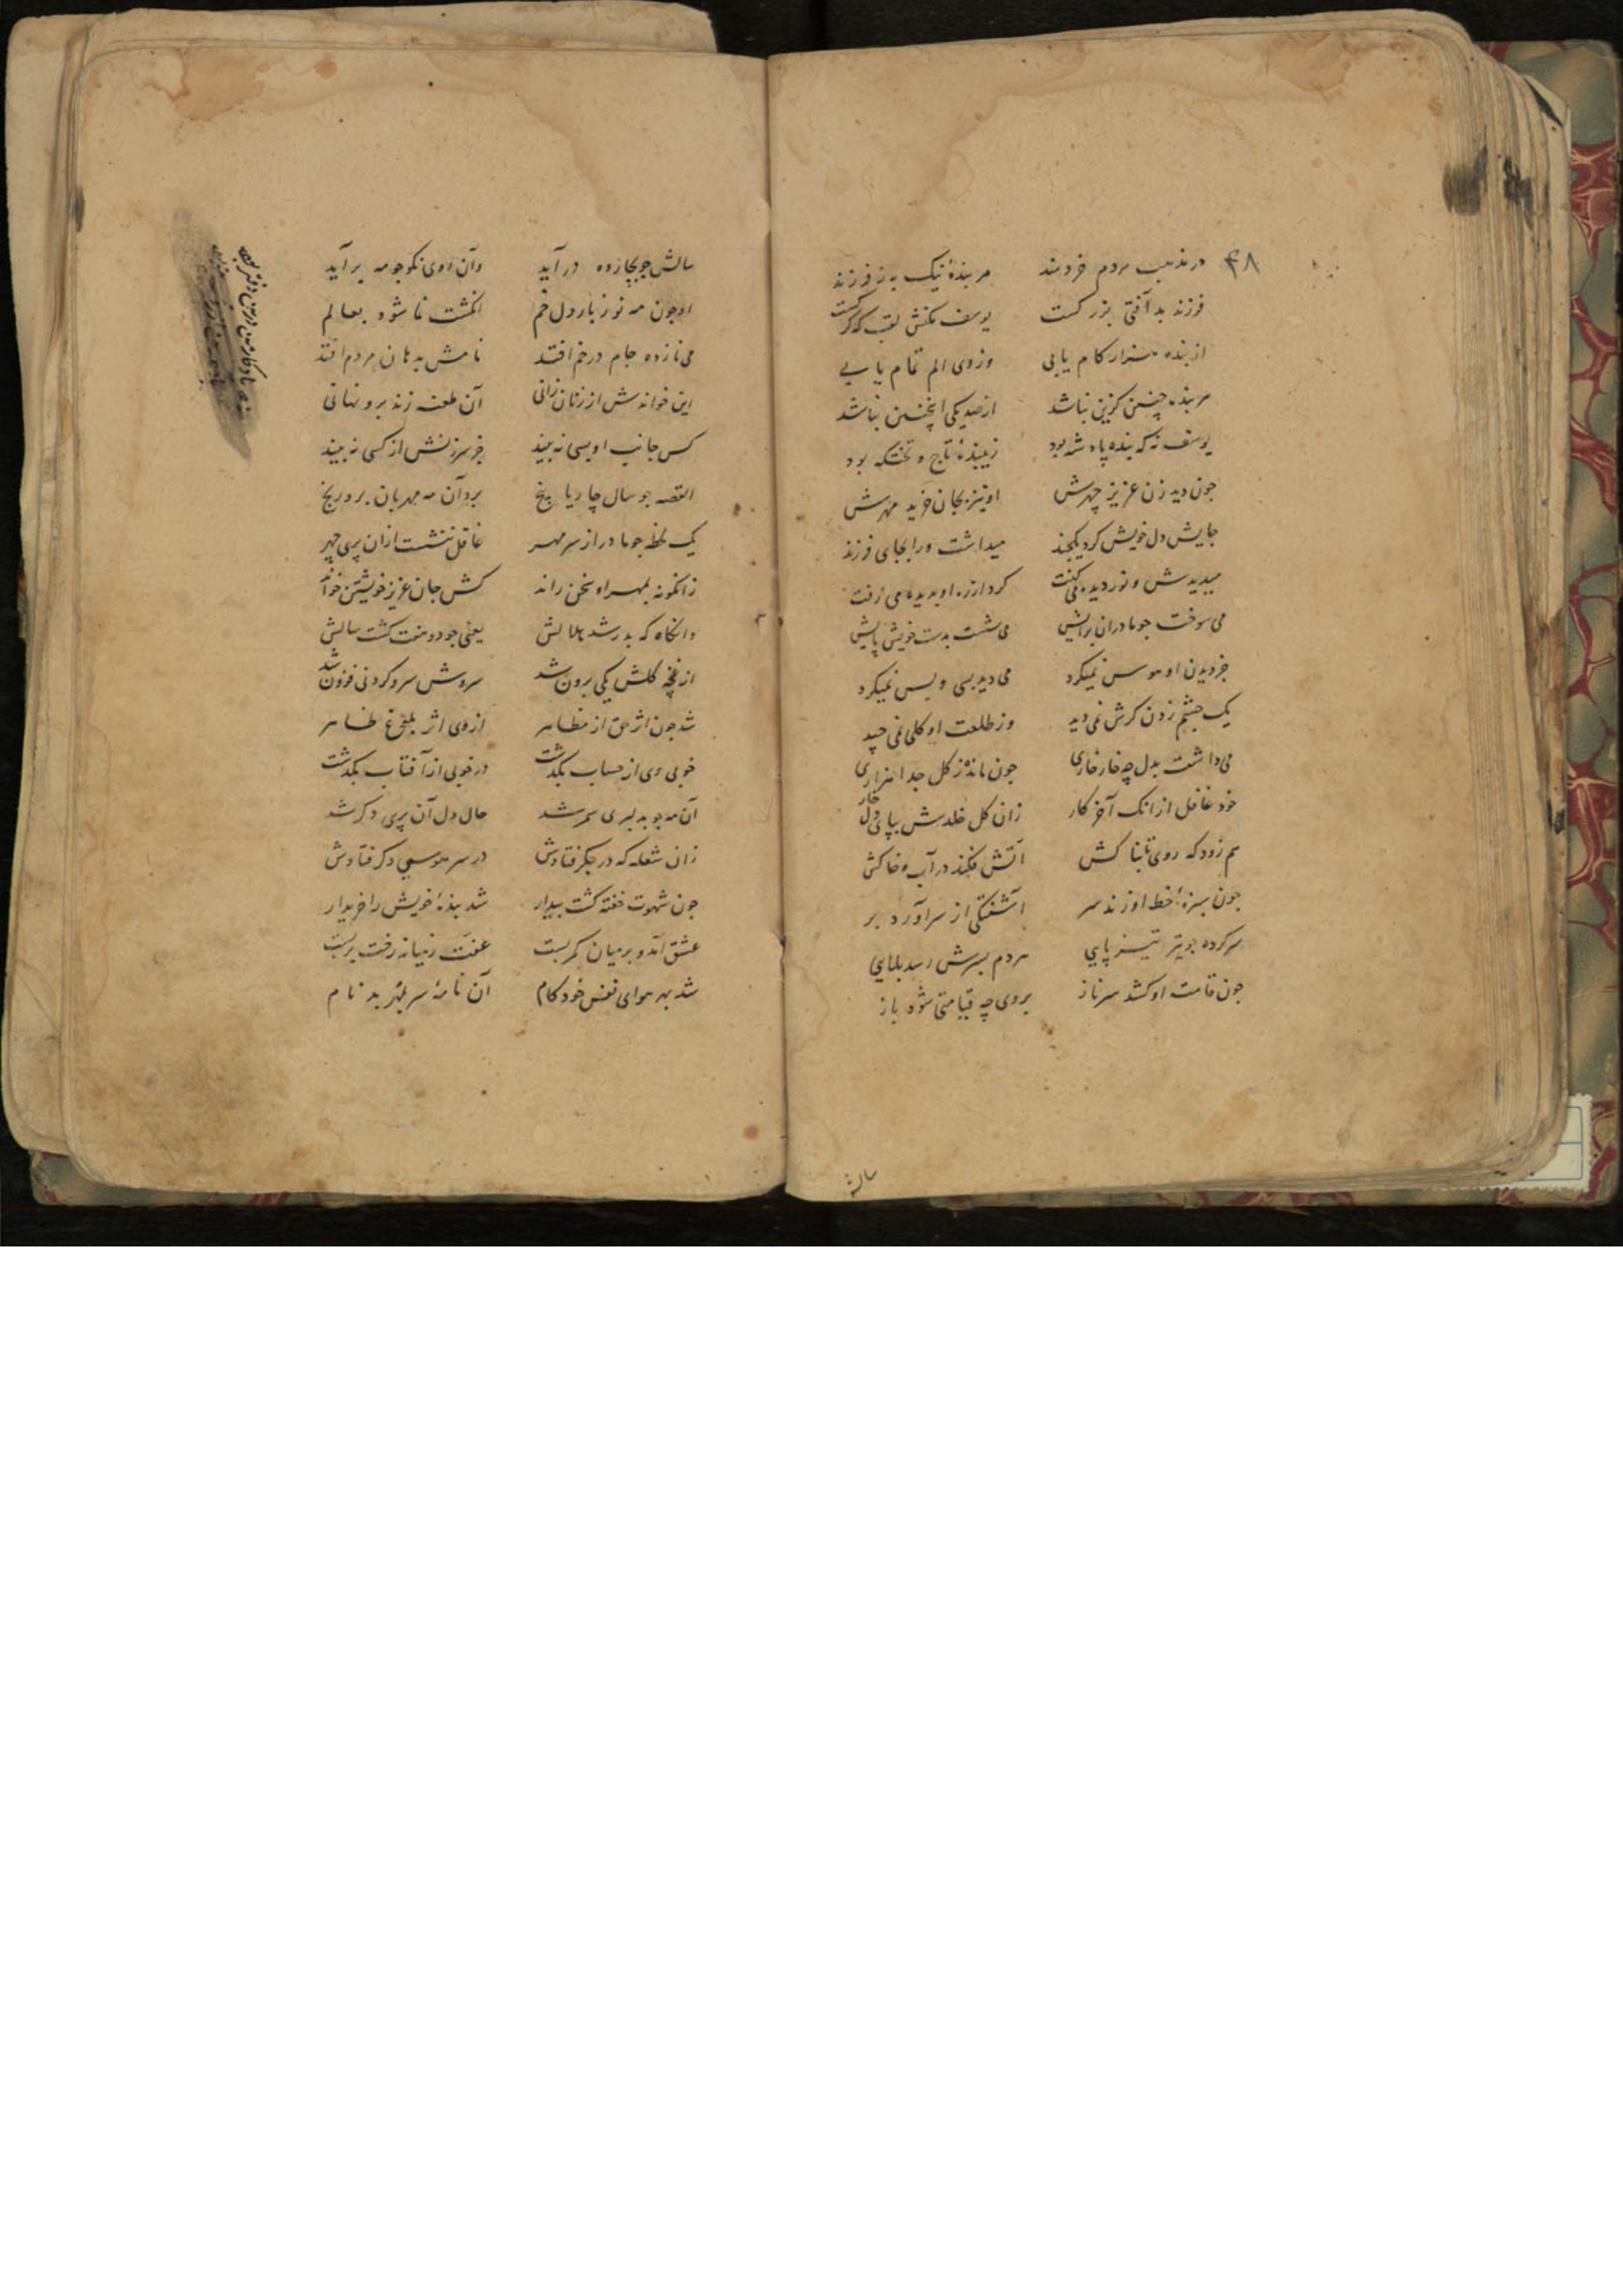 ۴۸
در مذهب مردم خردمند هر بندهٔ نیک به ز فرزند
فرزند بد آفتی بزرکست یوسف مکنش لقب که کرکست
از بنده هزار کام یابی وز وی الم تمام یابی
هر بنده چنین کزین نباشد از صد یکی اینچنین نباشد
یوسف نه که بنده پادشه بود زیبندهٔ تاج و تختکه بود
چون دید زن عزیز چهرش او نیز بجان خرید مهرش
جایش دل خویش کرد یکچند میداشت ورا بجای فرزند
میدیدش و نور دیده می کفت کرد از ره او بدیده می رفت
می سوخت جو مادران برایش می شست بدست خویش پایش
جز دیدن او هوس نمیکرد می دید بسی و بس نمیکرد
یک چشم زدن کرش نمی دید وز طلعت او کلی نمی چید
می داشت بدل چه خار خاری جون مانده ز کل جدا هزاری
خود غافل از انک آخر کار زان کل خلدش بپای دل خار
هم زود که روی تابناکش آتش فکند در آب و خاکش
جون سبزهٔ خط او زند سر آشفتکی از سر آورد بر
سر کرده جو تیر تیز پایی هر دم بسرش رسد بلایی
جون قامت او کشد سر ناز بروی چه قیامتی شود باز
سالش
سالش جو بچارده در آید وآن روی نکو جو مه برآید
او جون مه نو ز بار دل خم انکشت نما شود بعالم
می نازده جام در خم افتد نامش بدهان مردم افتد
این خواندش از زنان زانی آن طعنه زند برو نهانی
کس جانب او بسی نه بیند جز سرزنش از کسی نه بیند
القصه جو سال چار یا پنج برد آن مه مهربان برو رنج
یک لحظه جو مادر از سر مهر غافل ننشست ازان پری چهر
زانکونه بمهر او سخن راند کش جان عزیز خویشتن خواند
وانکاه که بدر شد هلالش یعنی جو دو هفت کشت سالش
از غنچه کلش یکی برون شد سروش سر و کردنی فزون شد
شد جون اثر حق از مظاهر از وی اثر بلوغ ظاهر
خوبی وی از حساب بکذشت در خوبی از آفتاب بکذشت
آن مه جو بدلبری سمر شد حال دل آن پری دکر شد
زان شعله که در جکر فتادش در سر هوسی دکر فتادش
جون شهوت خفته کشت بیدار شد بندهٔ خویش را خریدار
عشق آمد و بر میان کمر بست عفت ز میانه رخت بر بست
شد بهر هوای نفس خودکام آن نامهٔ سر بمهر بدنام